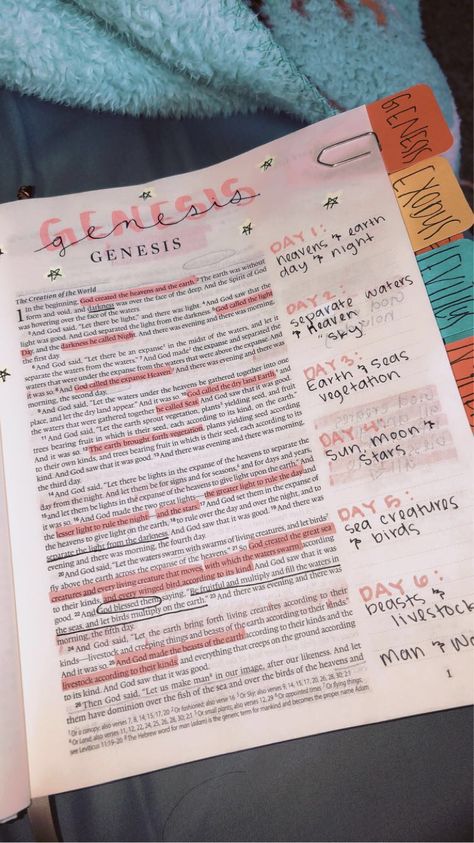 GENESIS
genesis
GENESIS
The Creation of the World
1 In the beginning, God created the heavens and the earth. 2 The earth was without
form and void, and darkness was over the face of the deep. And the Spirit of God
was hovering over the face of the waters.
3 And God said, "Let there be light," and there was light. 4 And God saw that the
light was good. And God separated the light from the darkness. 5 God called the light
Day, and the darkness he called Night. And there was evening and there was morning,
the first day.
6 And God said, "Let there be an expanse in the midst of the waters, and let it
separate the waters from the waters." 7 And God made the expanse and separated the
waters that were under the expanse from the waters that were above the expanse. And
it was so. 8 And God called the expanse Heaven. And there was evening and there was
morning, the second day.
9 And God said, "Let the waters under the heavens be gathered together into one
place, and let the dry land appear." And it was so. 10 God called the dry land Earth, and
the waters that were gathered together he called Seas. And God saw that it was good.
11 And God said, "Let the earth sprout vegetation, plants yielding seed, and fruit
trees bearing fruit in which is their seed, each according to its kind, on the earth."
And it was so. 12 The earth brought forth vegetation, plants yielding seed according
to their own kinds, and trees bearing fruit in which is their seed, each according to its
kind. And God saw that it was good. 13 And there was evening and there was morning,
the third day.
14 And God said, "Let there be lights in the expanse of the heavens to separate the
day from the night. And let them be for signs and for seasons, and for days and years,
15 and let them be lights in the expanse of the heavens to give light upon the earth." And
it was so. 16 And God made the two great lights—the greater light to rule the day and
the lesser light to rule the night—and the stars. 17 And God set them in the expanse of
the heavens to give light on the earth, 18 to rule over the day and over the night, and to
separate the light from the darkness. And God saw that it was good. 19 And there was
evening and there was morning, the fourth day.
20 And God said, "Let the waters swarm with swarms of living creatures, and let birds
fly above the earth across the expanse of the heavens." 21 So God created the great sea
creatures and every living creature that moves, with which the waters swarm, according
to their kinds, and every winged bird according to its kind. And God saw that it was
good. 22 And God blessed them, saying, "Be fruitful and multiply and fill the waters in
the seas, and let birds multiply on the earth." 23 And there was evening and there was
morning, the fifth day.
24 And God said, "Let the earth bring forth living creatures according to their
kinds—livestock and creeping things and beasts of the earth according to their kinds."
And it was so. 25 And God made the beasts of the earth according to their kinds and the
livestock according to their kinds, and everything that creeps on the ground according
to its kind. And God saw that it was good.
26 Then God said, "Let us make man in our image, after our likeness. And let
them have dominion over the fish of the sea and over the birds of the heavens and
1 Or a canopy; also verses 7, 8, 14, 15, 17, 20 2 Or fashioned; also verse 16 3 Or Sky; also verses 9, 14, 15, 17, 20, 26, 28, 30; 2:1
4 Or Land; also verses 11, 12, 22, 24, 25, 26, 28, 30; 2:1 5 Or small plants; also verses 12, 29 6 Or appointed times 7 Or flying things;
see Leviticus 11:19–20 8 The Hebrew word for man (adam) is the generic term for mankind and becomes the proper name Adam
DAY 1:
heavens & earth
day & night
DAY 2:
separate waters
& Heaven
"sky"
DAY 3:
Earth & Seas
vegetation
DAY 4:
sun, moon &
stars
DAY 5:
sea creatures
& birds
DAY 6:
beasts &
livestock
man & wo
1
GENESIS
EXODUS